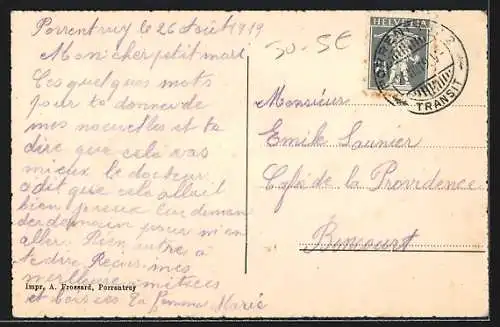 Porrentruy le 26 Août 1919
Mon cher petit mari
Ces quelques mots
pour te donner de
mes nouvelles et te
dire que cela vas
mieux le docteur
a dit que cela allait
bien mieux
demain pour m'en
aller. Rien autre à
te dire Reçois mes
meilleures
et baisers Ta femme Marie
Impr. A. Frossard, Porrentruy
30-SE
HELVETIA
PORRENTRUY 2
TRANSIT
Monsieur
Emile Saunier
Café de la Providence
Boncourt